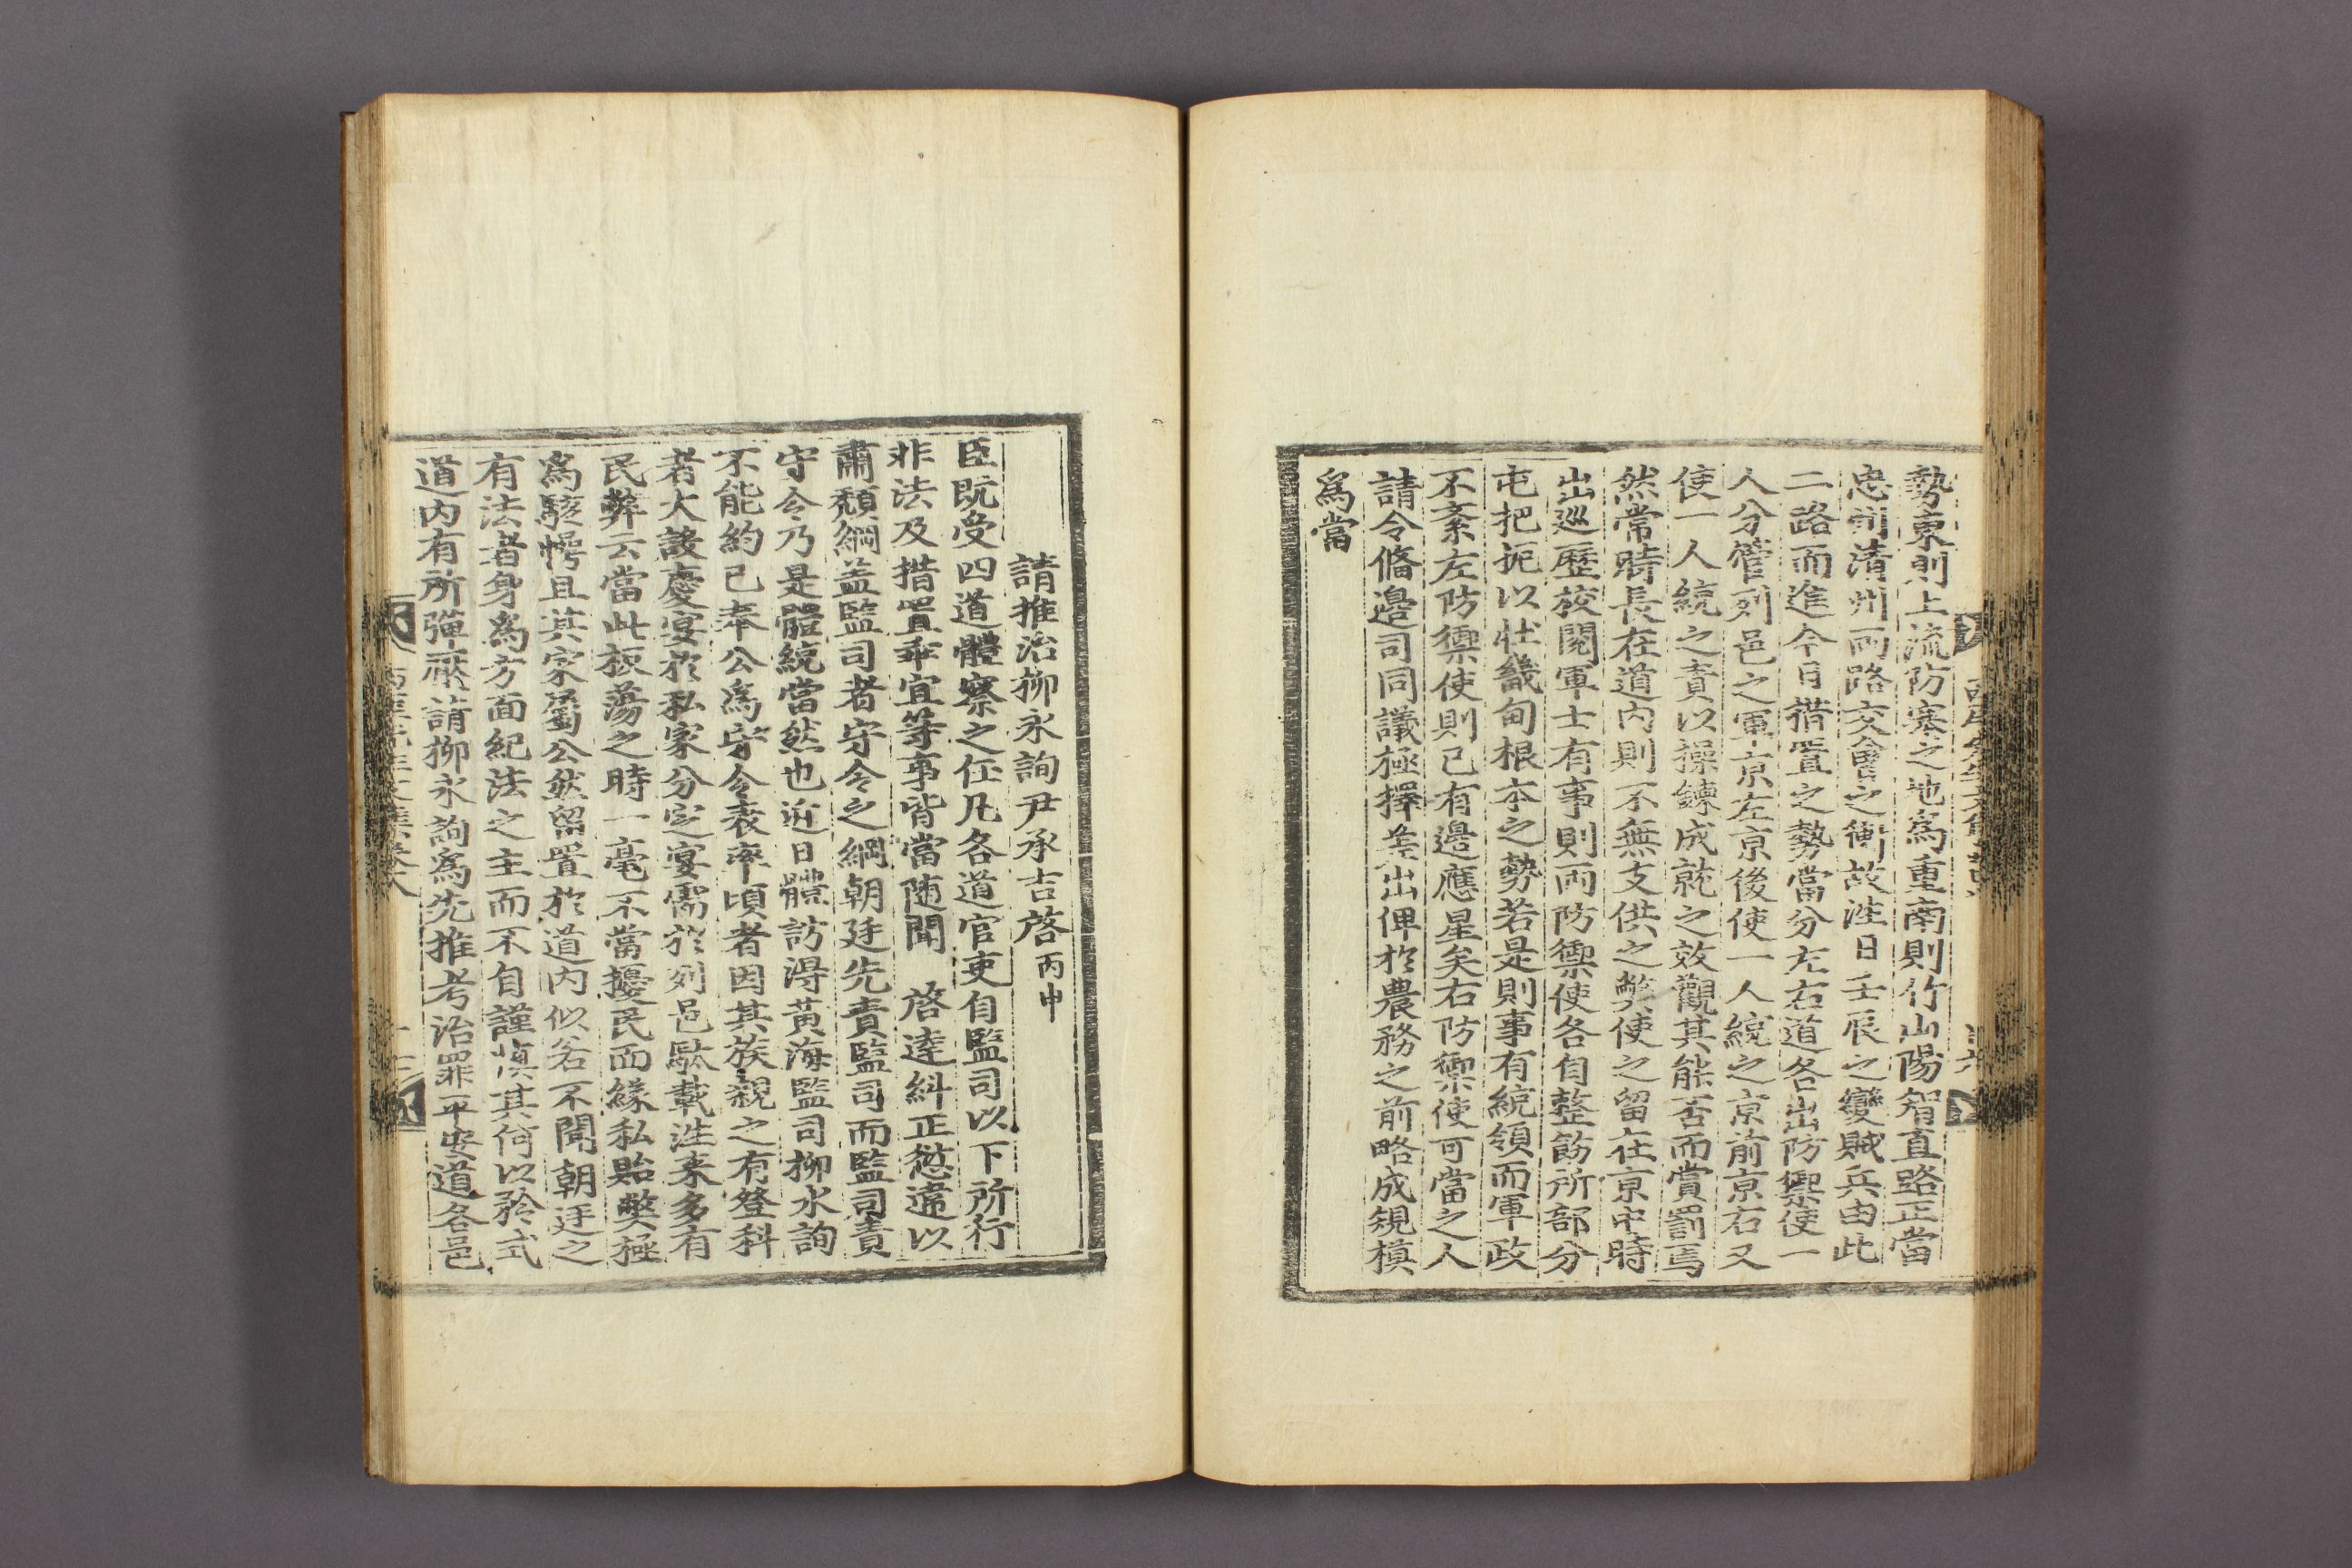 勢東則上流防塞之地爲重南則竹山陽智直路正當
忠州淸州兩路交會之衝故徃日壬辰之變賊兵由此
二路而進今日措置之勢當分左右道各出防禦使一
人分管列邑之軍京左京後使一人統之京前京右又
使一人統之責以操鍊成就之效觀其能否而賞罰焉
然常時長在道内則不無支供之弊使之留在京中時
出巡歷挍閱軍士有事則兩防禦使各自整飭所部分
屯把扼以壯畿甸根本之勢若是則事有統領而軍政
不紊左防禦使則已有邊應星矣右防禦使可當之人
請令備邊司同議極擇差出俾於農務之前略成規模
爲當
請推治柳永詢尹承吉啓丙申
臣旣受四道體察之任凡各道官吏自監司以下所行
非法及措置乖宜等事皆當随聞 啓達糾正愆違以
肅頹綱盖監司者守令之綱朝廷先責監司而監司責
守令乃是體統當然也近日體訪得黃海監司柳永詢
不能約己奉公爲守令表率頃者因其族親之有登科
者大設慶宴於私家分定宴需於列邑駄載徃来多有
民弊云當此板蕩之時一毫不當擾民而緣私貽弊極
爲駭愕且其家屬公然留置於道内似若不聞朝廷之
有法者身爲方面紀法之主而不自謹愼其何以矜式
道内有所彈壓請柳永詢爲先推考治罪平安道各邑